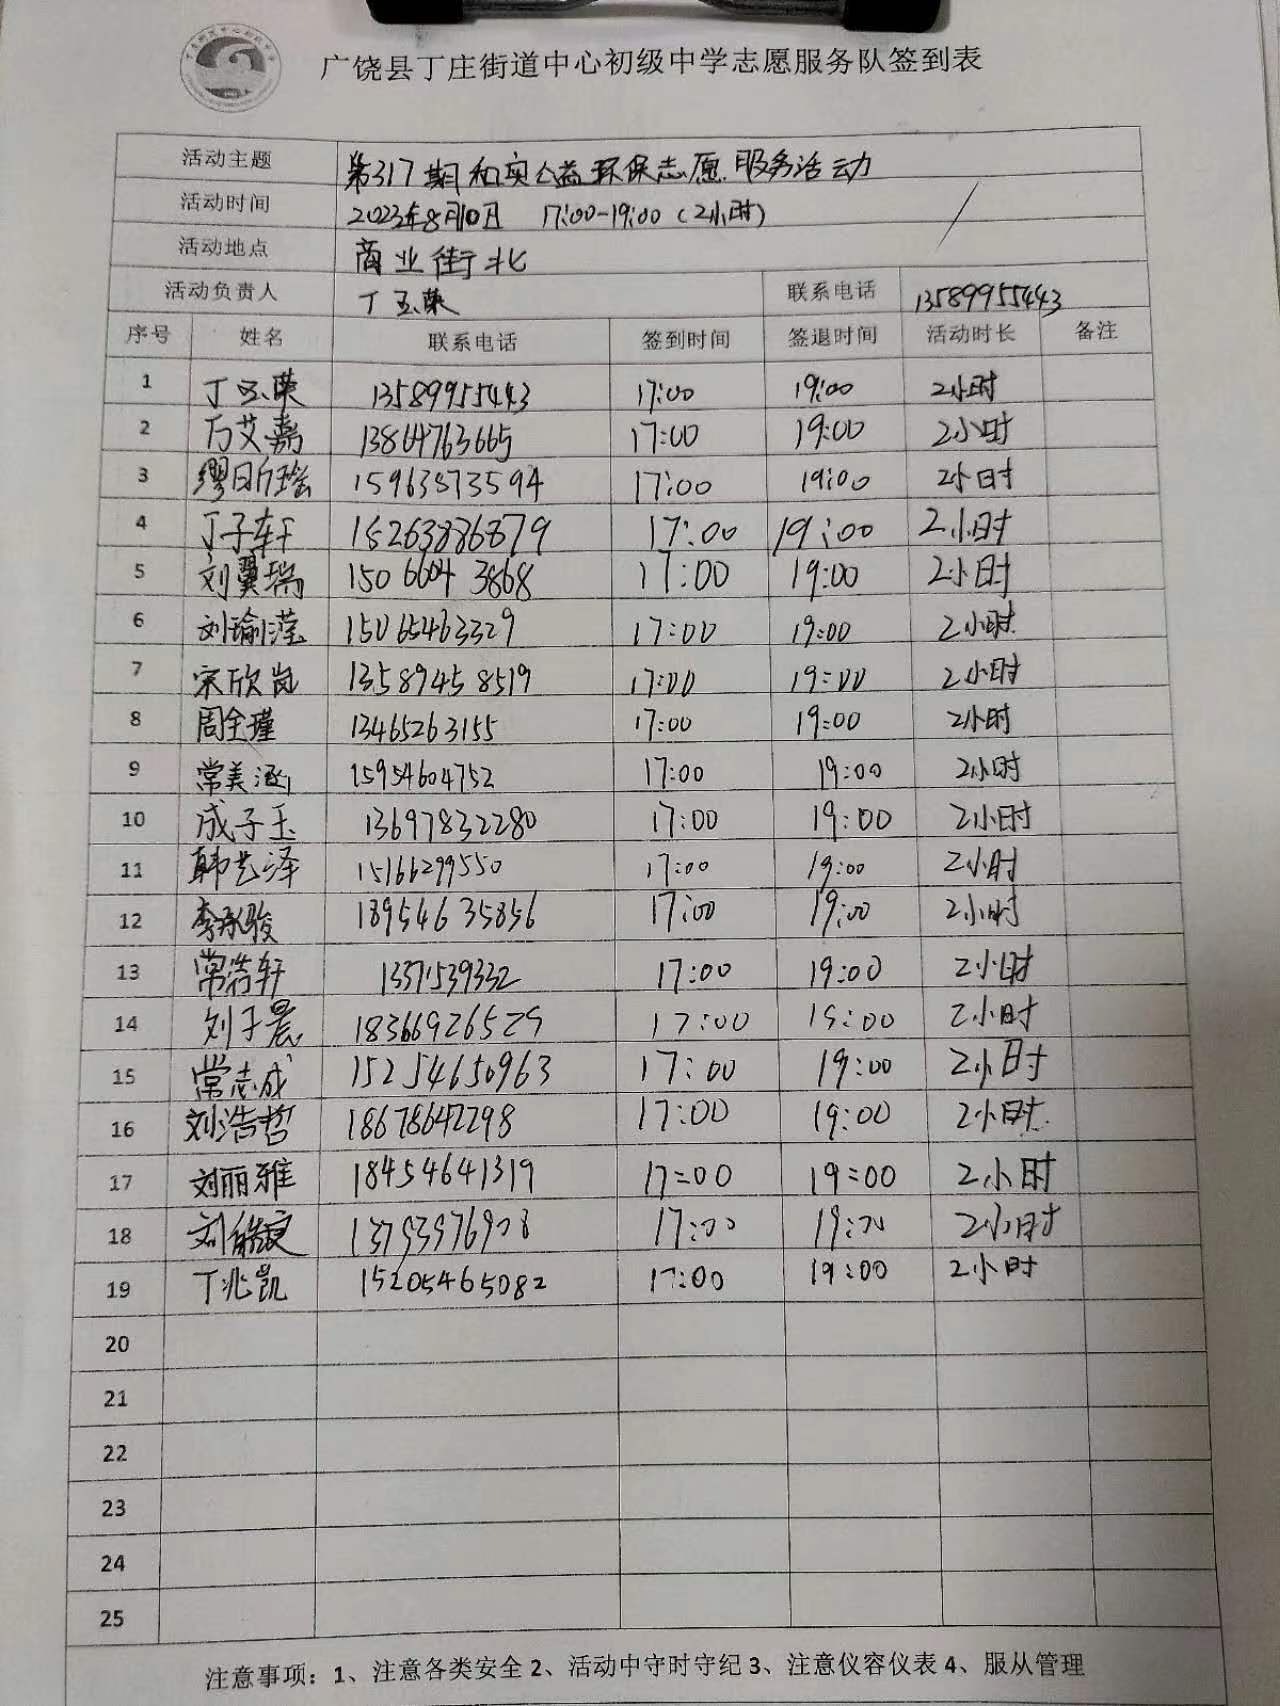 广饶县丁庄街道中心初级中学志愿服务队签到表
活动主题 第317期和实公益环保志愿服务活动
活动时间 2023年8月10日 17:00-19:00（2小时）
活动地点 商业街北
活动负责人 丁玉荣 联系电话 13589955443
序号 姓名 联系电话 签到时间 签退时间 活动时长 备注
1 丁玉荣 13589955443 17:00 19:00 2小时
2 万艾嘉 13864763665 17:00 19:00 2小时
3 缪昕瑶 15963873594 17:00 19:00 2小时
4 丁子轩 15263886879 17:00 19:00 2小时
5 刘翼瑞 150 6604 3868 17:00 19:00 2小时
6 刘瑜滢 15065463329 17:00 19:00 2小时
7 宋欣岚 13589458519 17:00 19:00 2小时
8 周全瑾 13465263155 17:00 19:00 2小时
9 常美涵 15954604752 17:00 19:00 2小时
10 成子玉 13697832280 17:00 19:00 2小时
11 韩艺泽 15166299550 17:00 19:00 2小时
12 李承骏 18954635856 17:00 19:00 2小时
13 常浩轩 13371539332 17:00 19:00 2小时
14 刘子晨 18366926529 17:00 19:00 2小时
15 常志成 15254650963 17:00 19:00 2小时
16 刘浩哲 18678642298 17:00 19:00 2小时
17 刘丽雅 18454641319 17:00 19:00 2小时
18 刘 13793976908 17:00 19:00 2小时
19 丁兆凯 15205465082 17:00 19:00 2小时
20
21
22
23
24
25
注意事项：1、注意各类安全2、活动中守时守纪3、注意仪容仪表4、服从管理